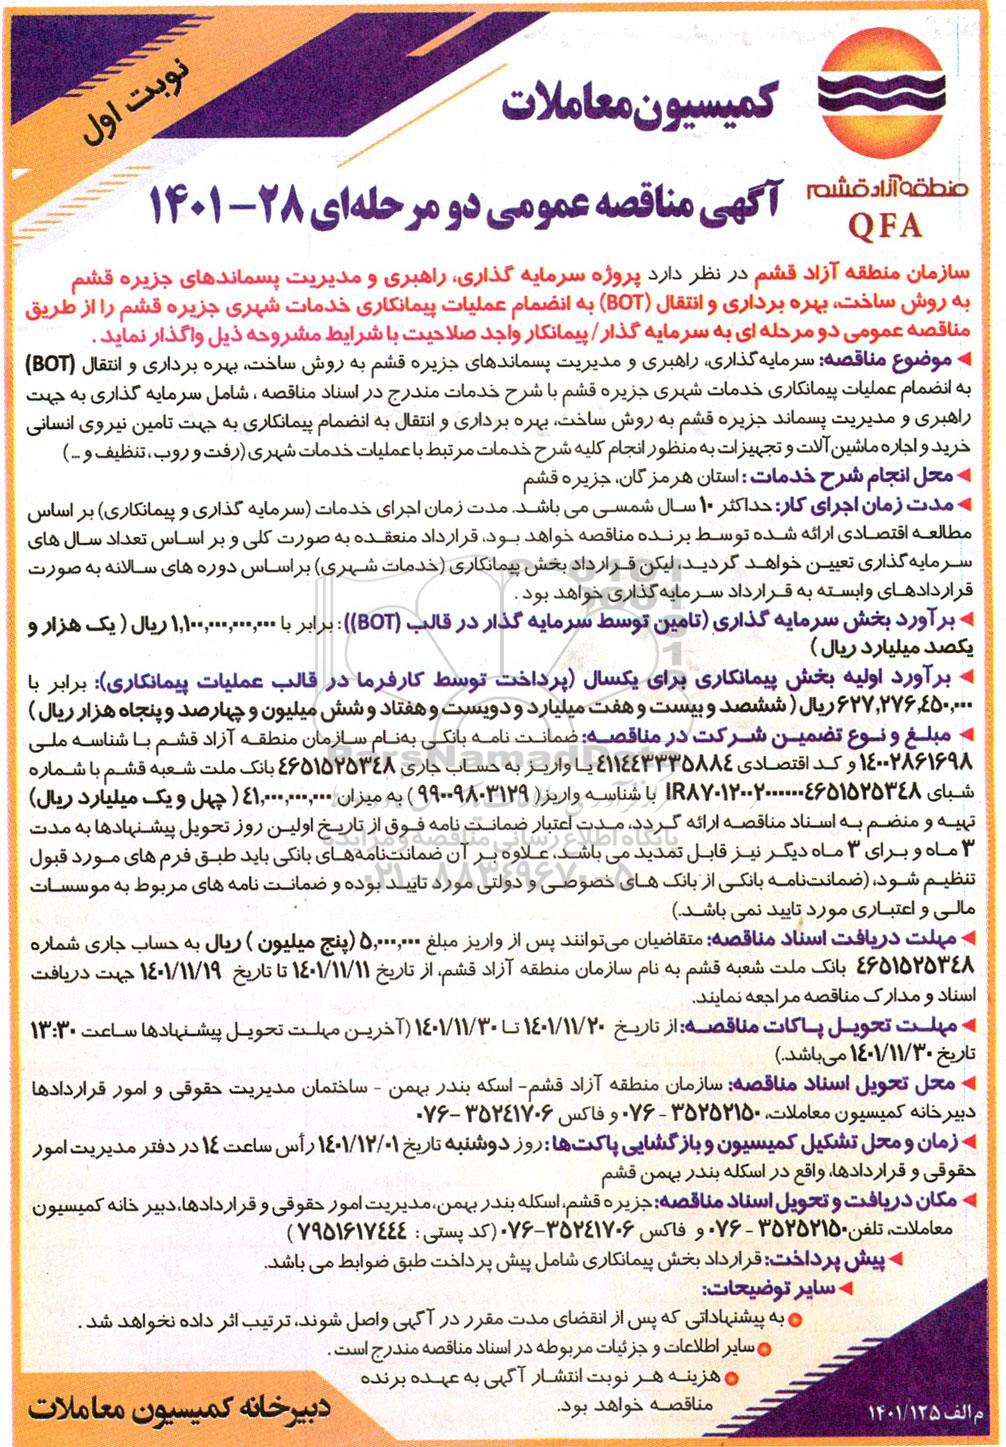 نوبت اول
کمیسیون معاملات
منطقه آزاد قشم
QFA
آگهی مناقصه عمومی دو مرحله‌ای ۲۸-۱۴۰۱
سازمان منطقه آزاد قشم در نظر دارد پروژه سرمایه گذاری، راهبری و مدیریت پسماندهای جزیره قشم
به روش ساخت، بهره برداری و انتقال (BOT) به انضمام عملیات پیمانکاری خدمات شهری جزیره قشم را از طریق
مناقصه عمومی دو مرحله ای به سرمایه گذار/ پیمانکار واجد صلاحیت با شرایط مشروحه ذیل واگذار نماید .
موضوع مناقصه: سرمایه‌گذاری، راهبری و مدیریت پسماندهای جزیره قشم به روش ساخت، بهره برداری و انتقال (BOT)
به انضمام عملیات پیمانکاری خدمات شهری جزیره قشم با شرح خدمات مندرج در اسناد مناقصه ، شامل سرمایه گذاری به جهت
راهبری و مدیریت پسماند جزیره قشم به روش ساخت، بهره برداری و انتقال به انضمام پیمانکاری به جهت تامین نیروی انسانی
خرید و اجاره ماشین آلات و تجهیزات به منظور انجام کلیه شرح خدمات مرتبط با عملیات خدمات شهری (رفت و روب ، تنظیف و ...)
محل انجام شرح خدمات : استان هرمزگان، جزیره قشم
مدت زمان اجرای کار: حداکثر ۱۰ سال شمسی می باشد. مدت زمان اجرای خدمات (سرمایه گذاری و پیمانکاری) بر اساس
مطالعه اقتصادی ارائه شده توسط برنده مناقصه خواهد بود، قرارداد منعقده به صورت کلی و بر اساس تعداد سال های
سرمایه‌گذاری تعیین خواهد گردید، لیکن قرارداد بخش پیمانکاری (خدمات شهری) براساس دوره های سالانه به صورت
قراردادهای وابسته به قرارداد سرمایه‌گذاری خواهد بود .
برآورد بخش سرمایه گذاری (تامین توسط سرمایه گذار در قالب (BOT)): برابر با ۱,۱۰۰,۰۰۰,۰۰۰,۰۰۰ ریال ( یک هزار و
یکصد میلیارد ریال )
برآورد اولیه بخش پیمانکاری برای یکسال (پرداخت توسط کارفرما در قالب عملیات پیمانکاری): برابر با
۶۲۷,۲۷۶,۴۵۰,۰۰۰ ریال ( ششصد و بیست و هفت میلیارد و دویست و هفتاد و شش میلیون و چهارصد و پنجاه هزار ریال )
مبلغ و نوع تضمین شرکت در مناقصه: ضمانت نامه بانکی به‌نام سازمان منطقه آزاد قشم با شناسه ملی
۱۴۰۰۲۸۶۱۶۹۸ و کد اقتصادی ۴۱۱۴۴۳۳۳۵۸۸۴ یا واریز به حساب جاری ۴۶۵۱۵۲۵۳۴۸ بانک ملت شعبه قشم با شماره
شبای IR۸۷۰۱۲۰۰۲۰۰۰۰۰۰۴۶۵۱۵۲۵۳۴۸ با شناسه واریز( ۹۹۰۰۹۸۰۳۱۲۹ ) به میزان ۴۱,۰۰۰,۰۰۰,۰۰۰ ( چهل و یک میلیارد ریال)
تهیه و منضم به اسناد مناقصه ارائه گردد، مدت اعتبار ضمانت نامه فوق از تاریخ اولین روز تحویل پیشنهادها به مدت
۳ ماه و برای ۳ ماه دیگر نیز قابل تمدید می باشد، علاوه بر آن ضمانت‌نامه‌های بانکی باید طبق فرم های مورد قبول
تنظیم شود، (ضمانت‌نامه بانکی از بانک های خصوصی و دولتی مورد تایید بوده و ضمانت نامه های مربوط به موسسات
مالی و اعتباری مورد تایید نمی باشد.)
مهلت دریافت اسناد مناقصه: متقاضیان می‌توانند پس از واریز مبلغ ۵,۰۰۰,۰۰۰ (پنج میلیون ) ریال به حساب جاری شماره
۴۶۵۱۵۲۵۳۴۸ بانک ملت شعبه قشم به نام سازمان منطقه آزاد قشم، از تاریخ ۱۴۰۱/۱۱/۱۱ تا تاریخ ۱۴۰۱/۱۱/۱۹ جهت دریافت
اسناد و مدارک مناقصه مراجعه نمایند.
مهلت تحویل پاکات مناقصه: از تاریخ ۱۴۰۱/۱۱/۲۰ تا ۱۴۰۱/۱۱/۳۰ (آخرین مهلت تحویل پیشنهادها ساعت ۱۳:۳۰
تاریخ ۱۴۰۱/۱۱/۳۰ می‌باشد.)
محل تحویل اسناد مناقصه: سازمان منطقه آزاد قشم- اسکه بندر بهمن - ساختمان مدیریت حقوقی و امور قراردادها
دبیرخانه کمیسیون معاملات، ۳۵۲۵۲۱۵۰ - ۰۷۶ و فاکس ۳۵۲۴۱۷۰۶ -۰۷۶
زمان و محل تشکیل کمیسیون و بازگشایی پاکت‌ها : روز دوشنبه تاریخ ۱۴۰۱/۱۲/۰۱ رأس ساعت ۱۴ در دفتر مدیریت امور
حقوقی و قراردادها، واقع در اسکله بندر بهمن قشم
مکان دریافت و تحویل اسناد مناقصه: جزیره قشم، اسکله بندر بهمن، مدیریت امور حقوقی و قراردادها، دبیر خانه کمیسیون
معاملات، تلفن ۳۵۲۵۲۱۵۰ - ۰۷۶ و فاکس ۳۵۲۴۱۷۰۶-۰۷۶ (کد پستی : ۷۹۵۱۶۱۷۴۴۴ )
پیش پرداخت: قرارداد بخش پیمانکاری شامل پیش پرداخت طبق ضوابط می باشد.
سایر توضیحات:
به پیشنهاداتی که پس از انقضای مدت مقرر در آگهی واصل شوند، ترتیب اثر داده نخواهد شد .
سایر اطلاعات و جزئیات مربوطه در اسناد مناقصه مندرج است .
هزینه هر نوبت انتشار آگهی به عهده برنده
مناقصه خواهد بود.
دبیرخانه کمیسیون معاملات
م الف ۱۴۰۱/۱۲۵
ParsNamadData
پایگاه اطلاع رسانی مناقصه و مزایده
۰۲۱-۸۸۳۴۹۶۷۰-۵